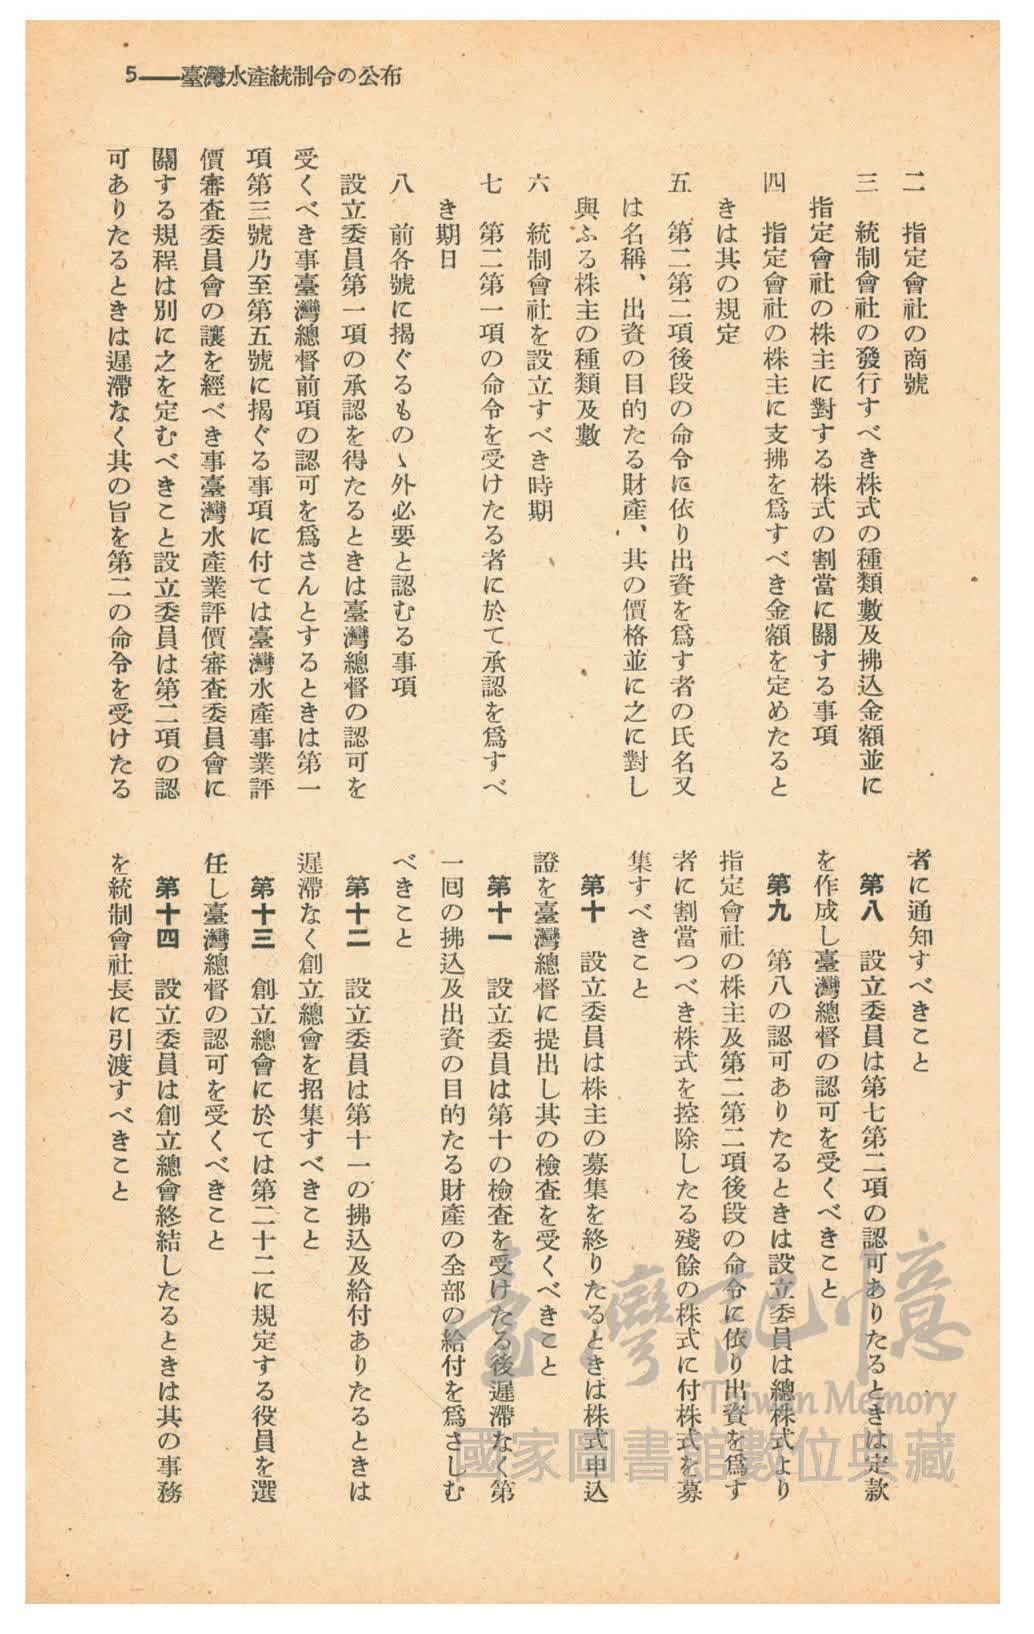 5——臺灣水產統制令の公布
二　指定會社の商號
三　統制會社の發行すべき株式の種類數及拂込金額並に
指定會社の株主に對する株式の割當に關する事項
四　指定會社の株主に支拂を爲すべき金額を定めたると
きは其の規定
五　第二第二項後段の命令に依り出資を爲す者の氏名又
は名稱、出資の目的たる財產、其の價格並に之に對し
與ふる株主の種類及數
六　統制會社を設立すべき時期
七　第二第一項の命令を受けたる者に於て承認を爲すべ
き期日
八　前各號に揭ぐるものゝ外必要と認むる事項
設立委員第一項の承認を得たるときは臺灣總督の認可を
受くべき事臺灣總督前項の認可を爲さんとするときは第一
項第三號乃至第五號に揭ぐる事項に付ては臺灣水產事業評
價審査委員會の讓を經べき事臺灣水產業評價審査委員會に
關する規程は別に之を定むべきこと設立委員は第二項の認
可ありたるときは遲滯なく其の旨を第二の命令を受けたる
者に通知すべきこと
第八　設立委員は第七第二項の認可ありたるときは定款
を作成し臺灣總督の認可を受くべきこと
第九　第八の認可ありたるときは設立委員は總株式より
指定會社の株主及第二第二項後段の命令に依り出資を爲す
者に割當つべき株式を控除したる殘餘の株式に付株式を募
集すべきこと
第十　設立委員は株主の募集を終りたるときは株式申込
證を臺灣總督に提出し其の檢査を受くべきこと
第十一　設立委員は第十の檢査を受けたる後遲滯なく第
一回の拂込及出資の目的たる財產の全部の給付を爲さしむ
べきこと
第十二　設立委員は第十一の拂込及給付ありたるときは
遲滯なく創立總會を招集すべきこと
第十三　創立總會に於ては第二十二に規定する役員を選
任し臺灣總督の認可を受くべきこと
第十四　設立委員は創立總會終結したるときは其の事務
を統制會社長に引渡すべきこと
臺灣記憶
Taiwan Memory
國家圖書館數位典藏